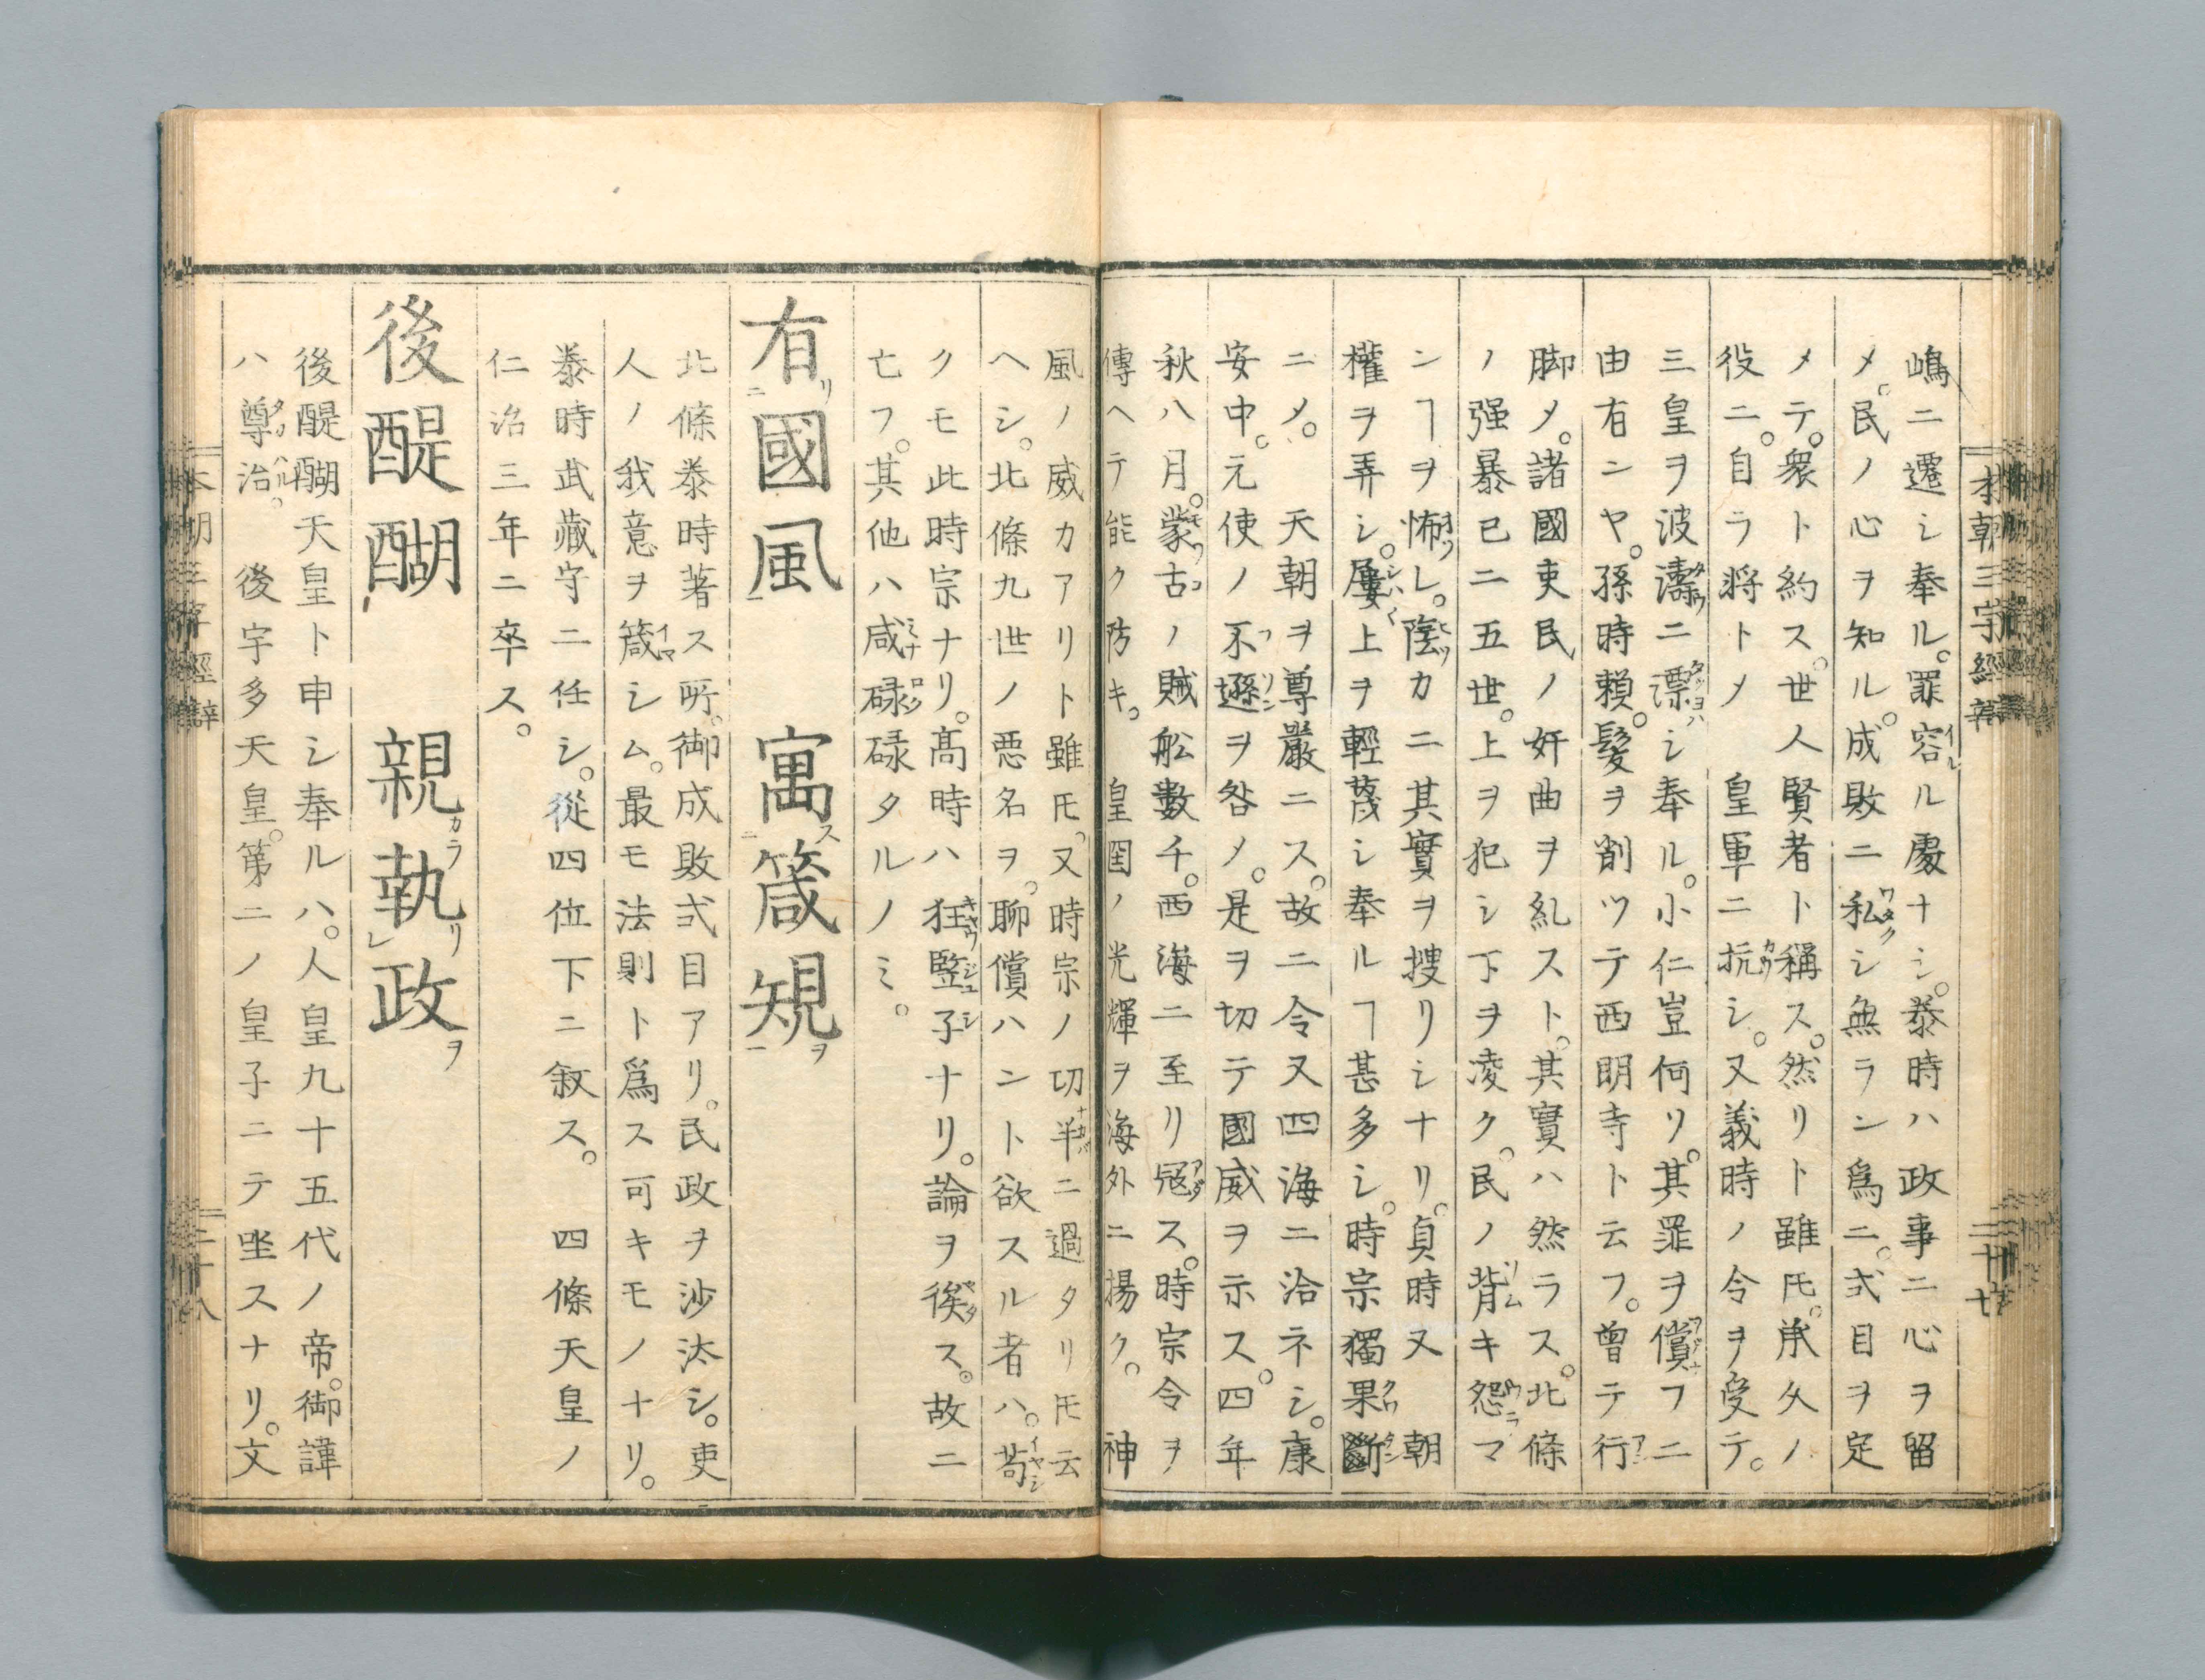 嶋ニ遷シ奉ル。罪容ル處ナシ。泰時ハ政事ニ心ヲ留
メ。民ノ心ヲ知ル。成敗ニ私シ無ラン爲ニ。式目ヲ定
メテ。衆ト約ス。世人賢者ト稱ス。然リト雖𪜈。承久ノ
役ニ。自ラ將トメ　皇軍ニ抗シ。又義時ノ令ヲ受テ。
三皇ヲ波濤ニ漂シ奉ル。小仁豈何ソ。其罪ヲ償フニ
由有ンヤ。孫時賴。髮ヲ削ツテ西明寺ト云フ。曾テ行
脚メ。諸國吏民ノ奸曲ヲ糺スト。其實ハ然ラス。北條
ノ强暴已ニ五世。上ヲ犯シ下ヲ凌ク。民ノ背キ怨マ
ンヿヲ怖レ。陰カニ其實ヲ搜リシナリ。貞時又　朝
權ヲ弄シ。屢〻上ヲ輕蔑シ奉ルヿ甚多シ。時宗獨果斷
ニメ。　天朝ヲ尊嚴ニス。故ニ令又四海ニ洽ネシ。康
安中。元使ノ不遜ヲ咎メ。是ヲ切テ國威ヲ示ス。四年
秋八月。蒙古ノ賊船數千。西海ニ至リ寇ス。時宗令ヲ
傳ヘテ能ク防キ。　皇國ノ光輝ヲ海外ニ揚ク。　神
本朝三字經
二十七
風ノ威カアリト雖𪜈。又時宗ノ切半ニ過タリ𪜈云
ヘシ。北條九世ノ惡名ヲ。聊償ハント欲スル者ハ。苟
クモ此時宗ナリ。高時ハ狂豎子ナリ。論ヲ俟ス。故ニ
亡フ。其他ハ咸碌碌タルノミ。
有リ二國風一　寓ス二箴規ヲ一
北條泰時著ス所。御成敗式目アリ。民政ヲ沙汰シ。吏
人ノ我意ヲ箴シム。最モ法則ト爲ス可キモノナリ。
泰時武藏守ニ任シ。從四位下ニ叙ス。　四條天皇ノ
仁治三年ニ卒ス。
後醍醐　親カラ執リレ政ヲ
後醍醐天皇ト申シ奉ルハ。人皇九十五代ノ帝。御諱
ハ尊治。　後宇多天皇。第二ノ皇子ニテ坐スナリ。文
本朝三字經
二十八